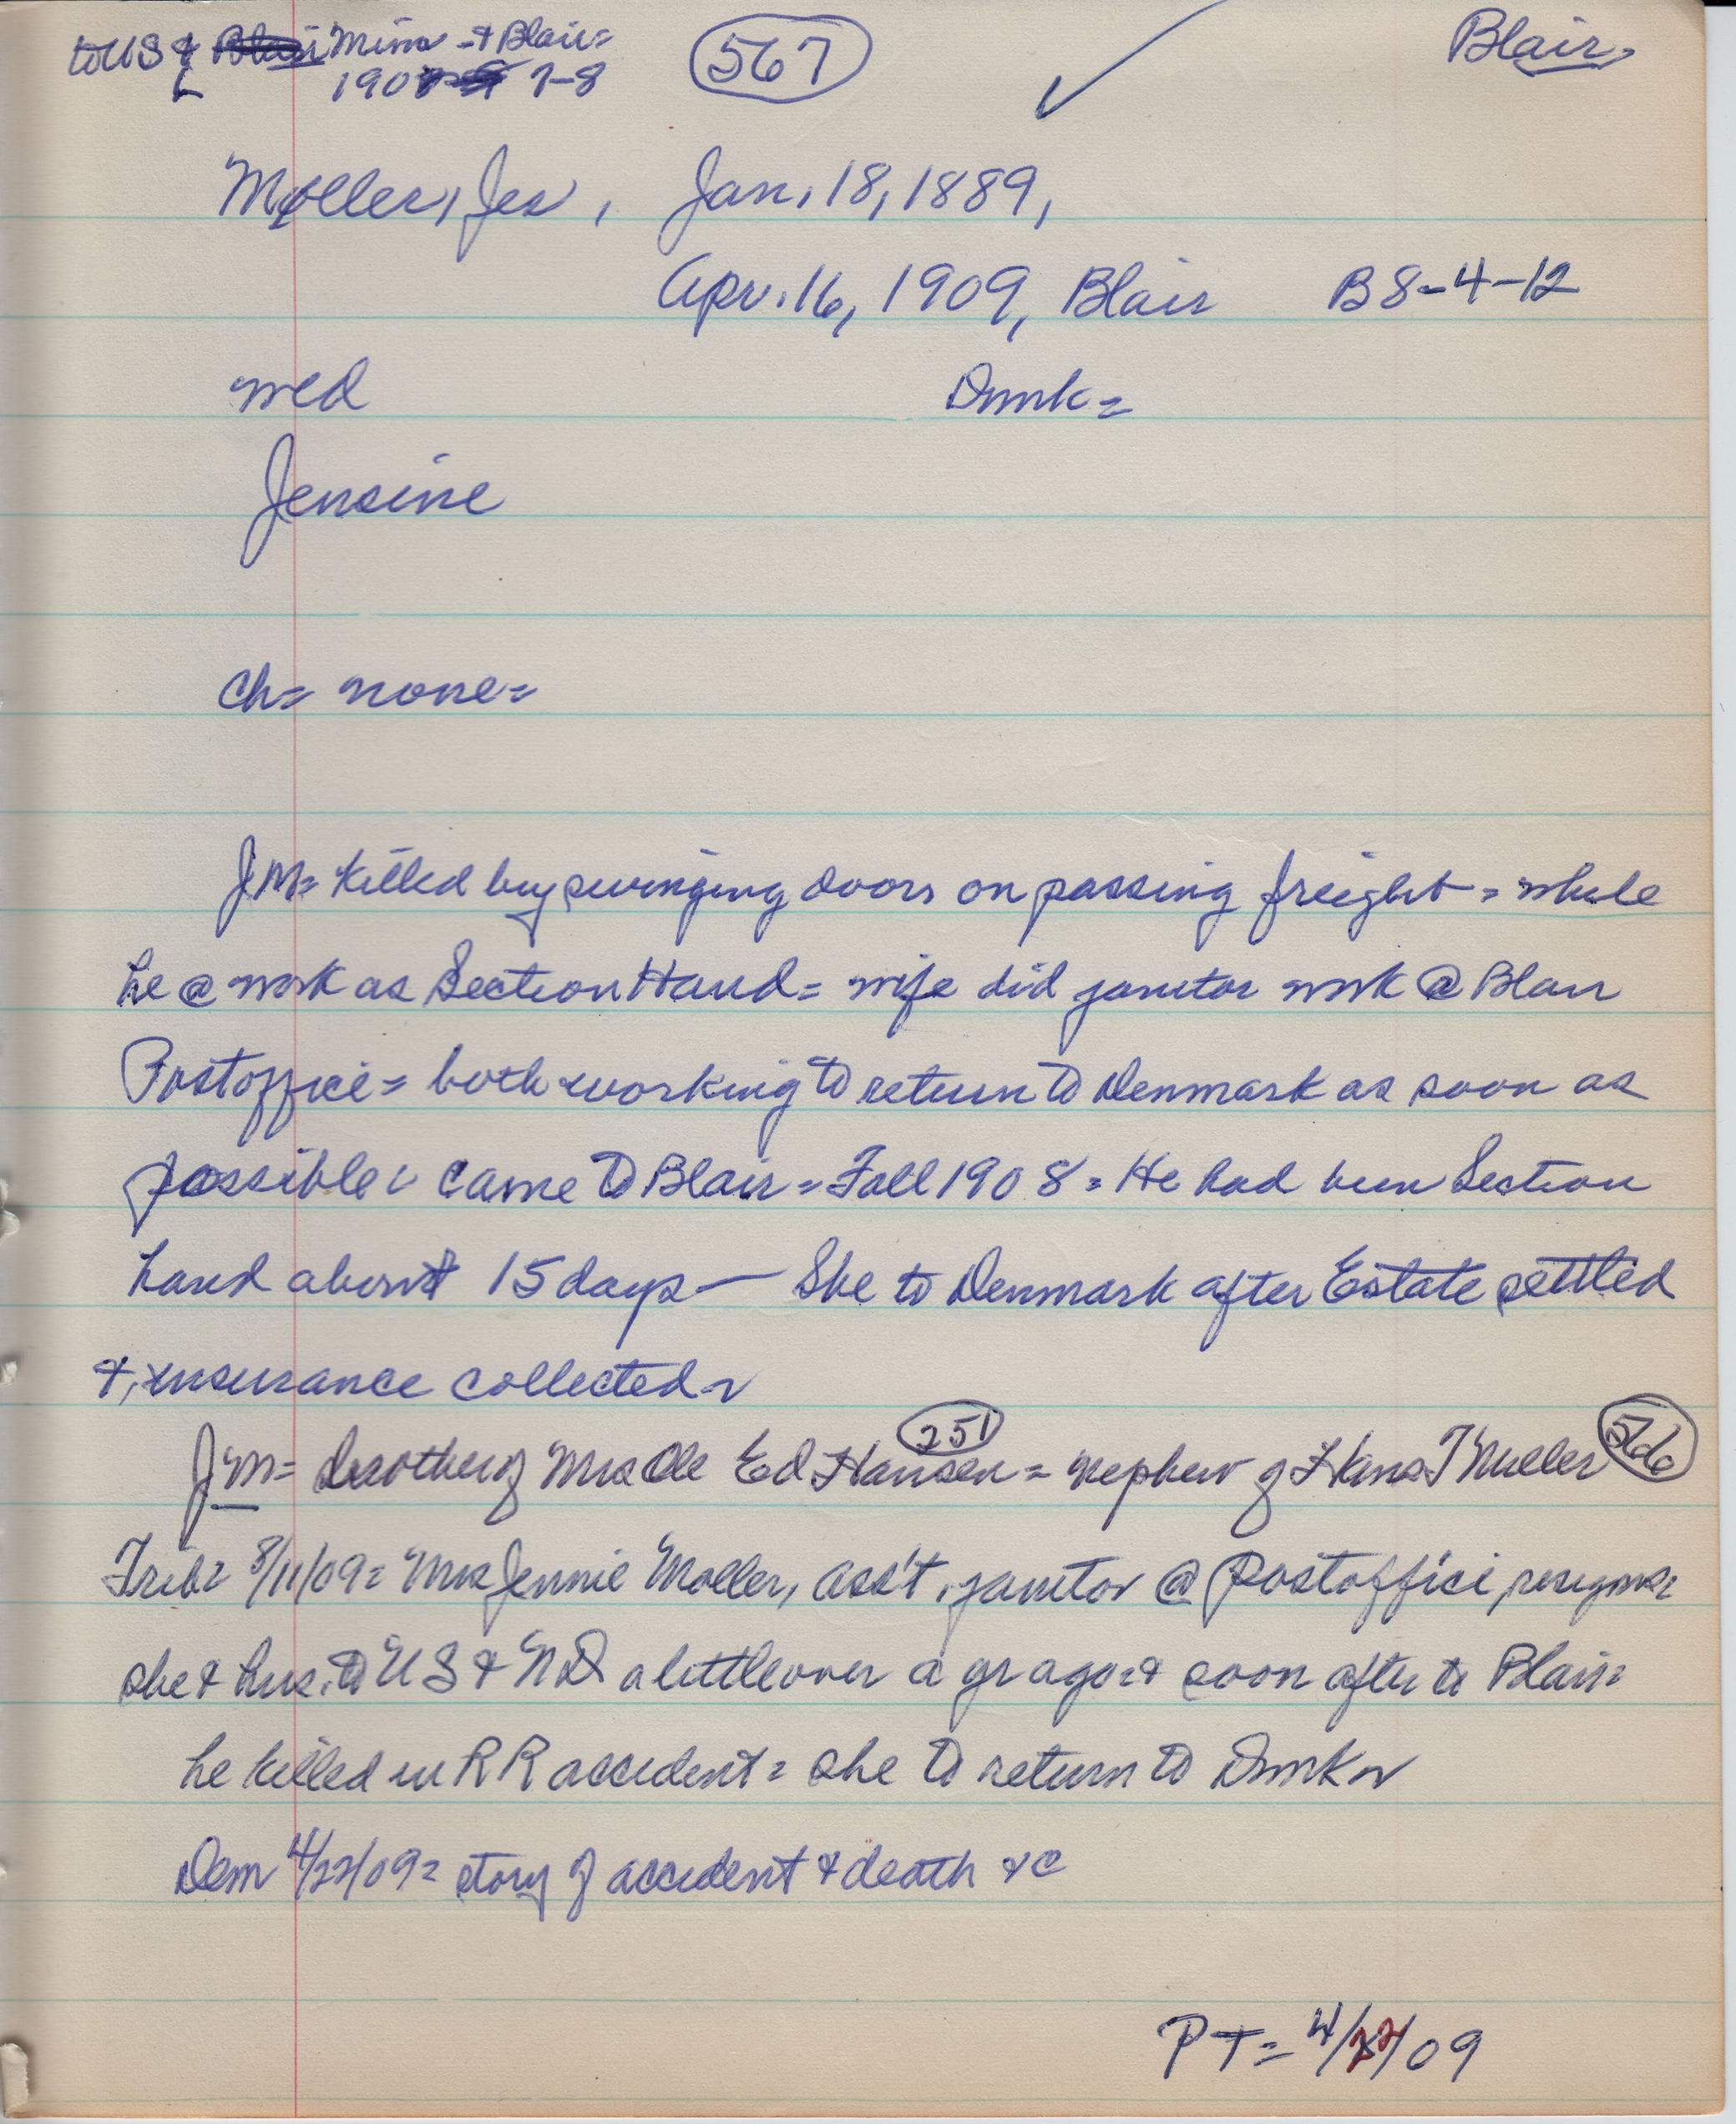 to US & Minn - & Blair =
1907-8
567
Blair =
Møller, Jes, Jan. 18, 1889,
Apr. 16, 1909, Blair B 8-4-12
wed Dmrk =
Jensine
ch = none =
JM = killed by swinging doors on passing freight = while
he @ work as Section Hand = wife did janitor work @ Blair
Postoffice = both working to return to Denmark as soon as
possible = came to Blair = Fall 1908 = He had been Section
hand about 15 days — She to Denmark after Estate settled
& insurance collected
JM = brother of Mrs Ole Ed Hansen 251 = nephew of Hans T Moeller 566
Trib = 8/11/09 = Mrs Jennie Moller, ass't. janitor @ Postoffice, resigns =
she & hus. to US & ND a little over a yr ago = & soon after to Blair =
he killed in RR accident = she to return to Dmrk
Dem 4/22/09 = story of accident & death &c
PT = 4/22/09